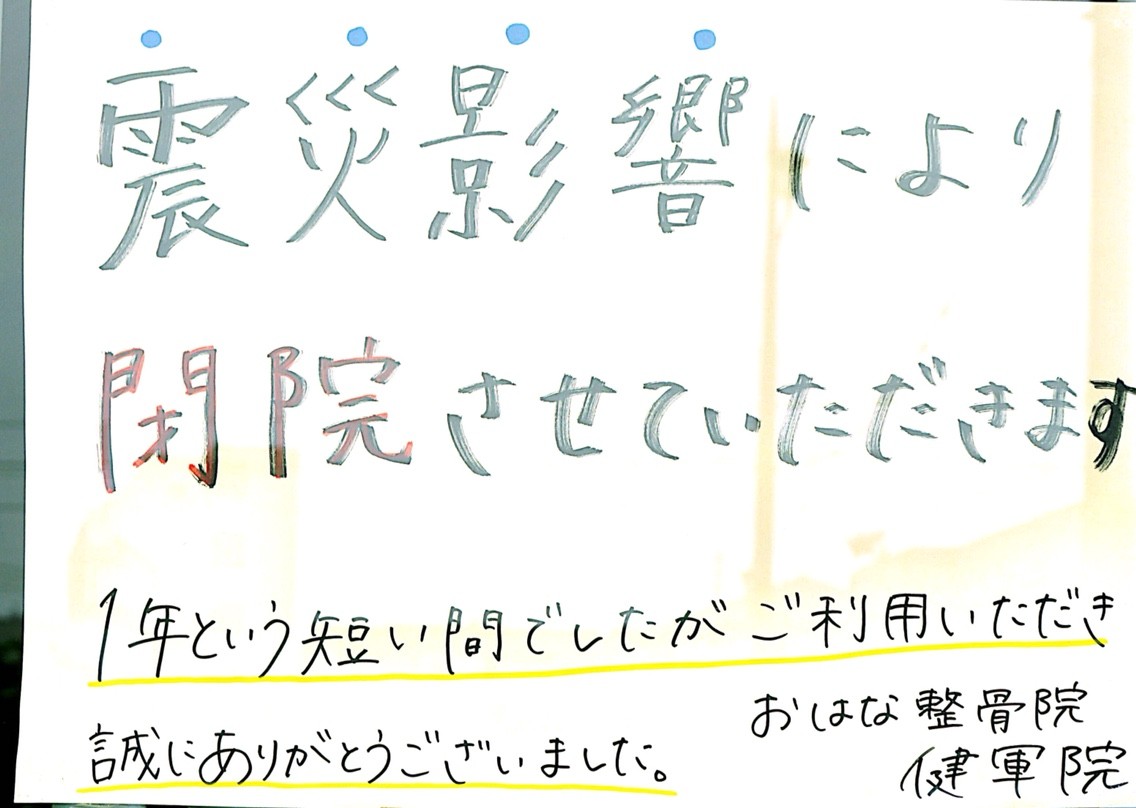 震災影響により
閉院させていただきます
1年という短い間でしたがご利用いただき
誠にありがとうございました。
おはな整骨院
健軍院